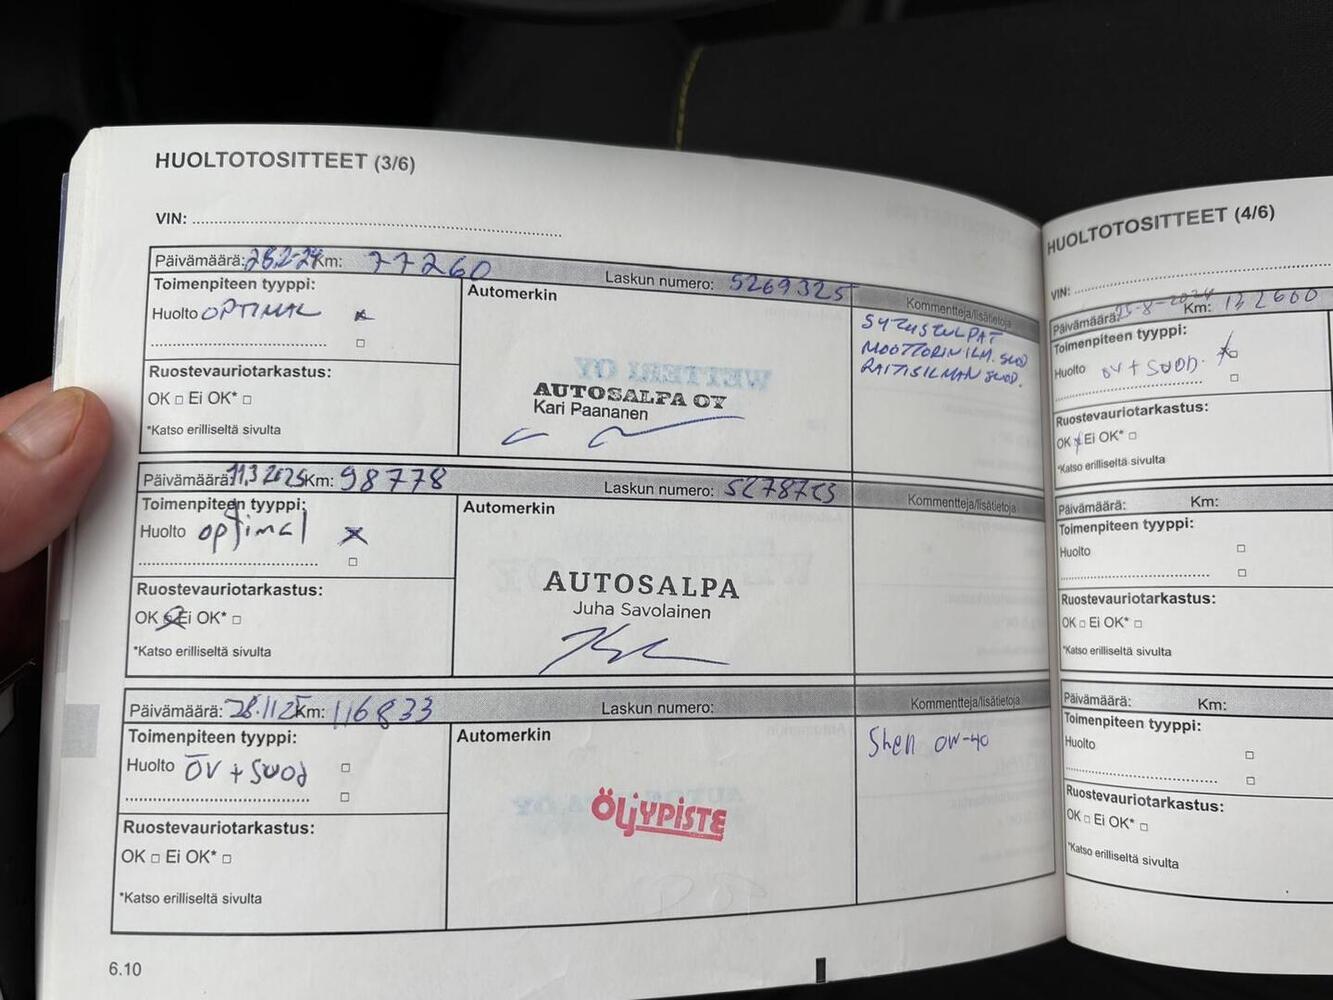 HUOLTOTOSITTEET (3/6)
VIN:
Päivämäärä: 28.2-24 Km: 77260 Laskun numero: 5269325
Toimenpiteen tyyppi:
Huolto OPTIMAL
Ruostevauriotarkastus:
OK □ Ei OK* □
*Katso erilliseltä sivulta
Automerkin
AUTOSALPA OY
Kari Paananen
Kommentteja/lisätietoja
SYTUSTULPAT
MOOTTORIN ILM. SUOD
RAITISILMAN SUOD.
Päivämäärä: 11.3 2025 Km: 98778 Laskun numero:
Toimenpiteen tyyppi:
Huolto optimal
Ruostevauriotarkastus:
OK Ei OK* □
*Katso erilliseltä sivulta
Automerkin
AUTOSALPA
Juha Savolainen
Kommentteja/lisätietoja
Päivämäärä: Km: 116833 Laskun numero:
Toimenpiteen tyyppi:
Huolto ÖV + SUOd
Ruostevauriotarkastus:
OK □ Ei OK* □
*Katso erilliseltä sivulta
Automerkin
ÖLJYPISTE
Kommentteja/lisätietoja
Shell 0W-40
6.10
HUOLTOTOSITTEET (4/6)
VIN:
Päivämäärä: Km: 132600
Toimenpiteen tyyppi:
Huolto ÖV + SUOD.
Ruostevauriotarkastus:
OK Ei OK* □
*Katso erilliseltä sivulta
Päivämäärä: Km:
Toimenpiteen tyyppi:
Huolto
Ruostevauriotarkastus:
OK □ Ei OK* □
*Katso erilliseltä sivulta
Päivämäärä: Km:
Toimenpiteen tyyppi:
Huolto
Ruostevauriotarkastus:
OK □ Ei OK* □
*Katso erilliseltä sivulta